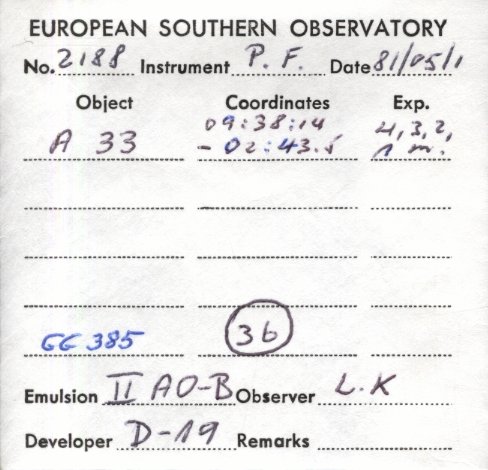 EUROPEAN SOUTHERN OBSERVATORY
No. 2188 Instrument P. F. Date 81/05/1
Object Coordinates Exp.
09:38:14 4, 3, 2,
A 33 - 02:43.5 1 m.
GG 385 36
Emulsion II AO-B Observer L.K
Developer D-19 Remarks